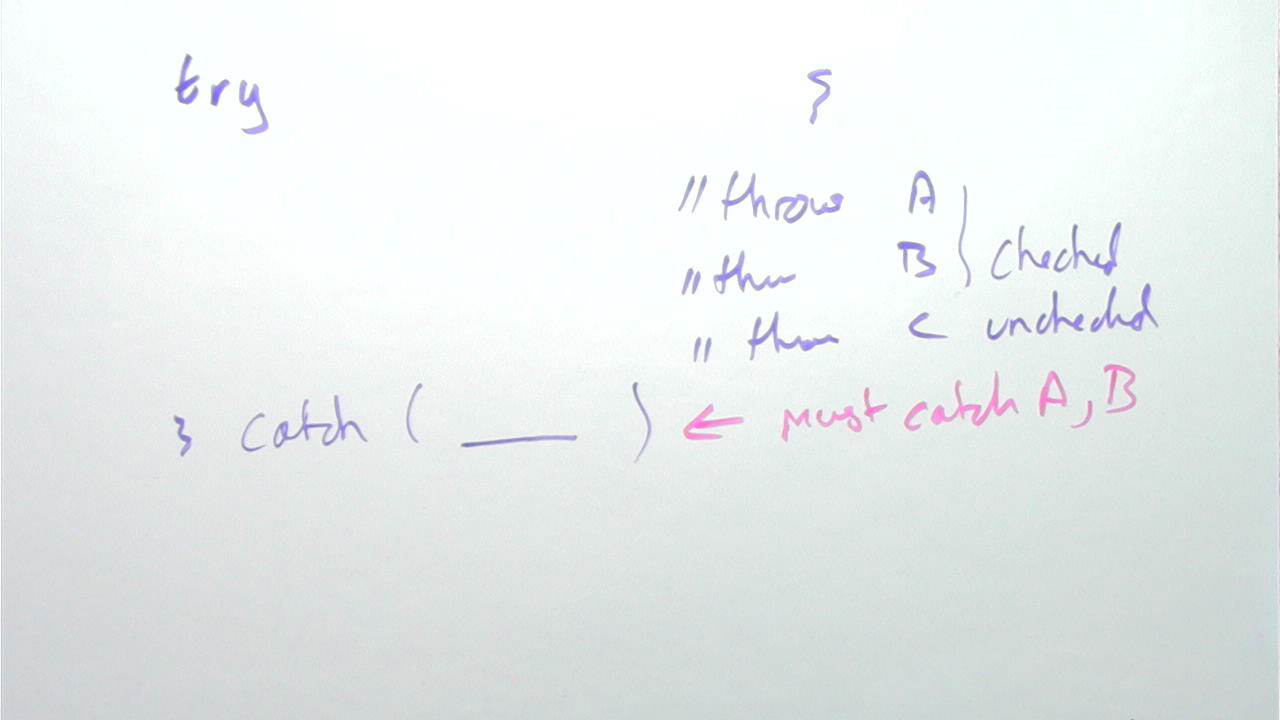 try {
// throws A
// thr B } checked
// throw C unchecked
} catch ( ___ ) ← must catch A, B